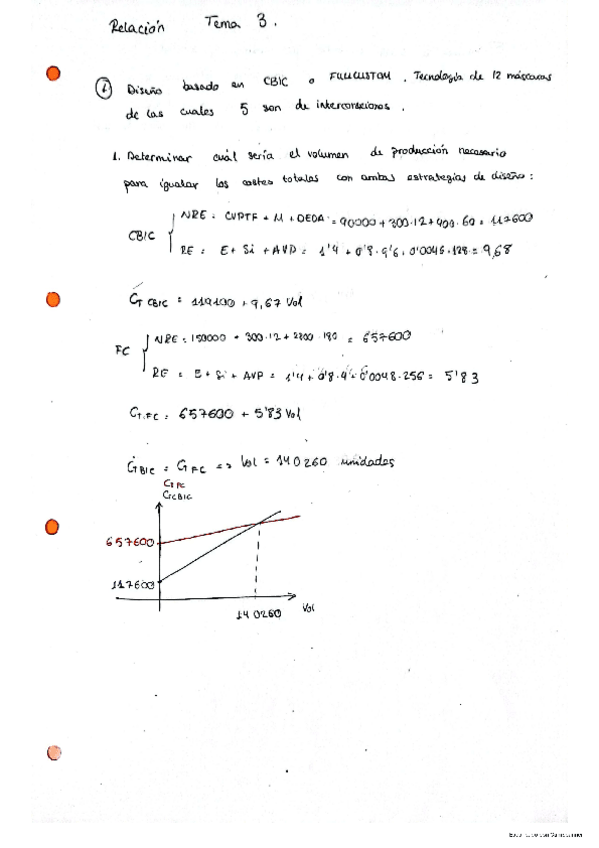 Relación Tema 3.
1 Diseño basado en CBIC o FULLCUSTOM. Tecnología de 12 máscaras
de las cuales 5 son de interconexiones.
1. Determinar cuál sería el volumen de producción necesario
para igualar los costes totales con ambas estrategias de diseño:
CBIC
NRE = CVPTF + M + DEDA = 90000 + 300·12 + 400·60 = 117600
RE = E + Si + AVP = 1'4 + 0'8·9'6 + 0'0046·128 = 9,68
CT CBIC = 119100 + 9,67 Vol
FC
NRE = 150000 + 300·12 + 2800·180 = 657600
RE = E + Si + AVP = 1'4 + 0'8·4 + 0'0048·256 = 5'83
CT.FC = 657600 + 5'83 Vol
CTBIC = CTFC => Vol = 140260 unidades
CT FC
CTCBIC
657600
117600
140260
Vol